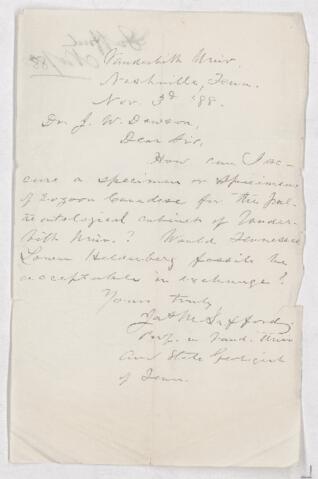 Vanderbilt Univ.
Nashville, Tenn.
Nov. 3d '88.
Dr. J. W. Dawson,
Dear Sir,
How can I se-
cure a specimen or specimens
of Eozoon Canadese for the pal-
eontological cabinets of Vander-
bilt Univ.? Would Tennessee
Lower Helderberg fossils be
acceptable in exchange?
Yours truly
Jas M Safford,
Prof. in Vand. Univ
and State Geologist
of Tenn.